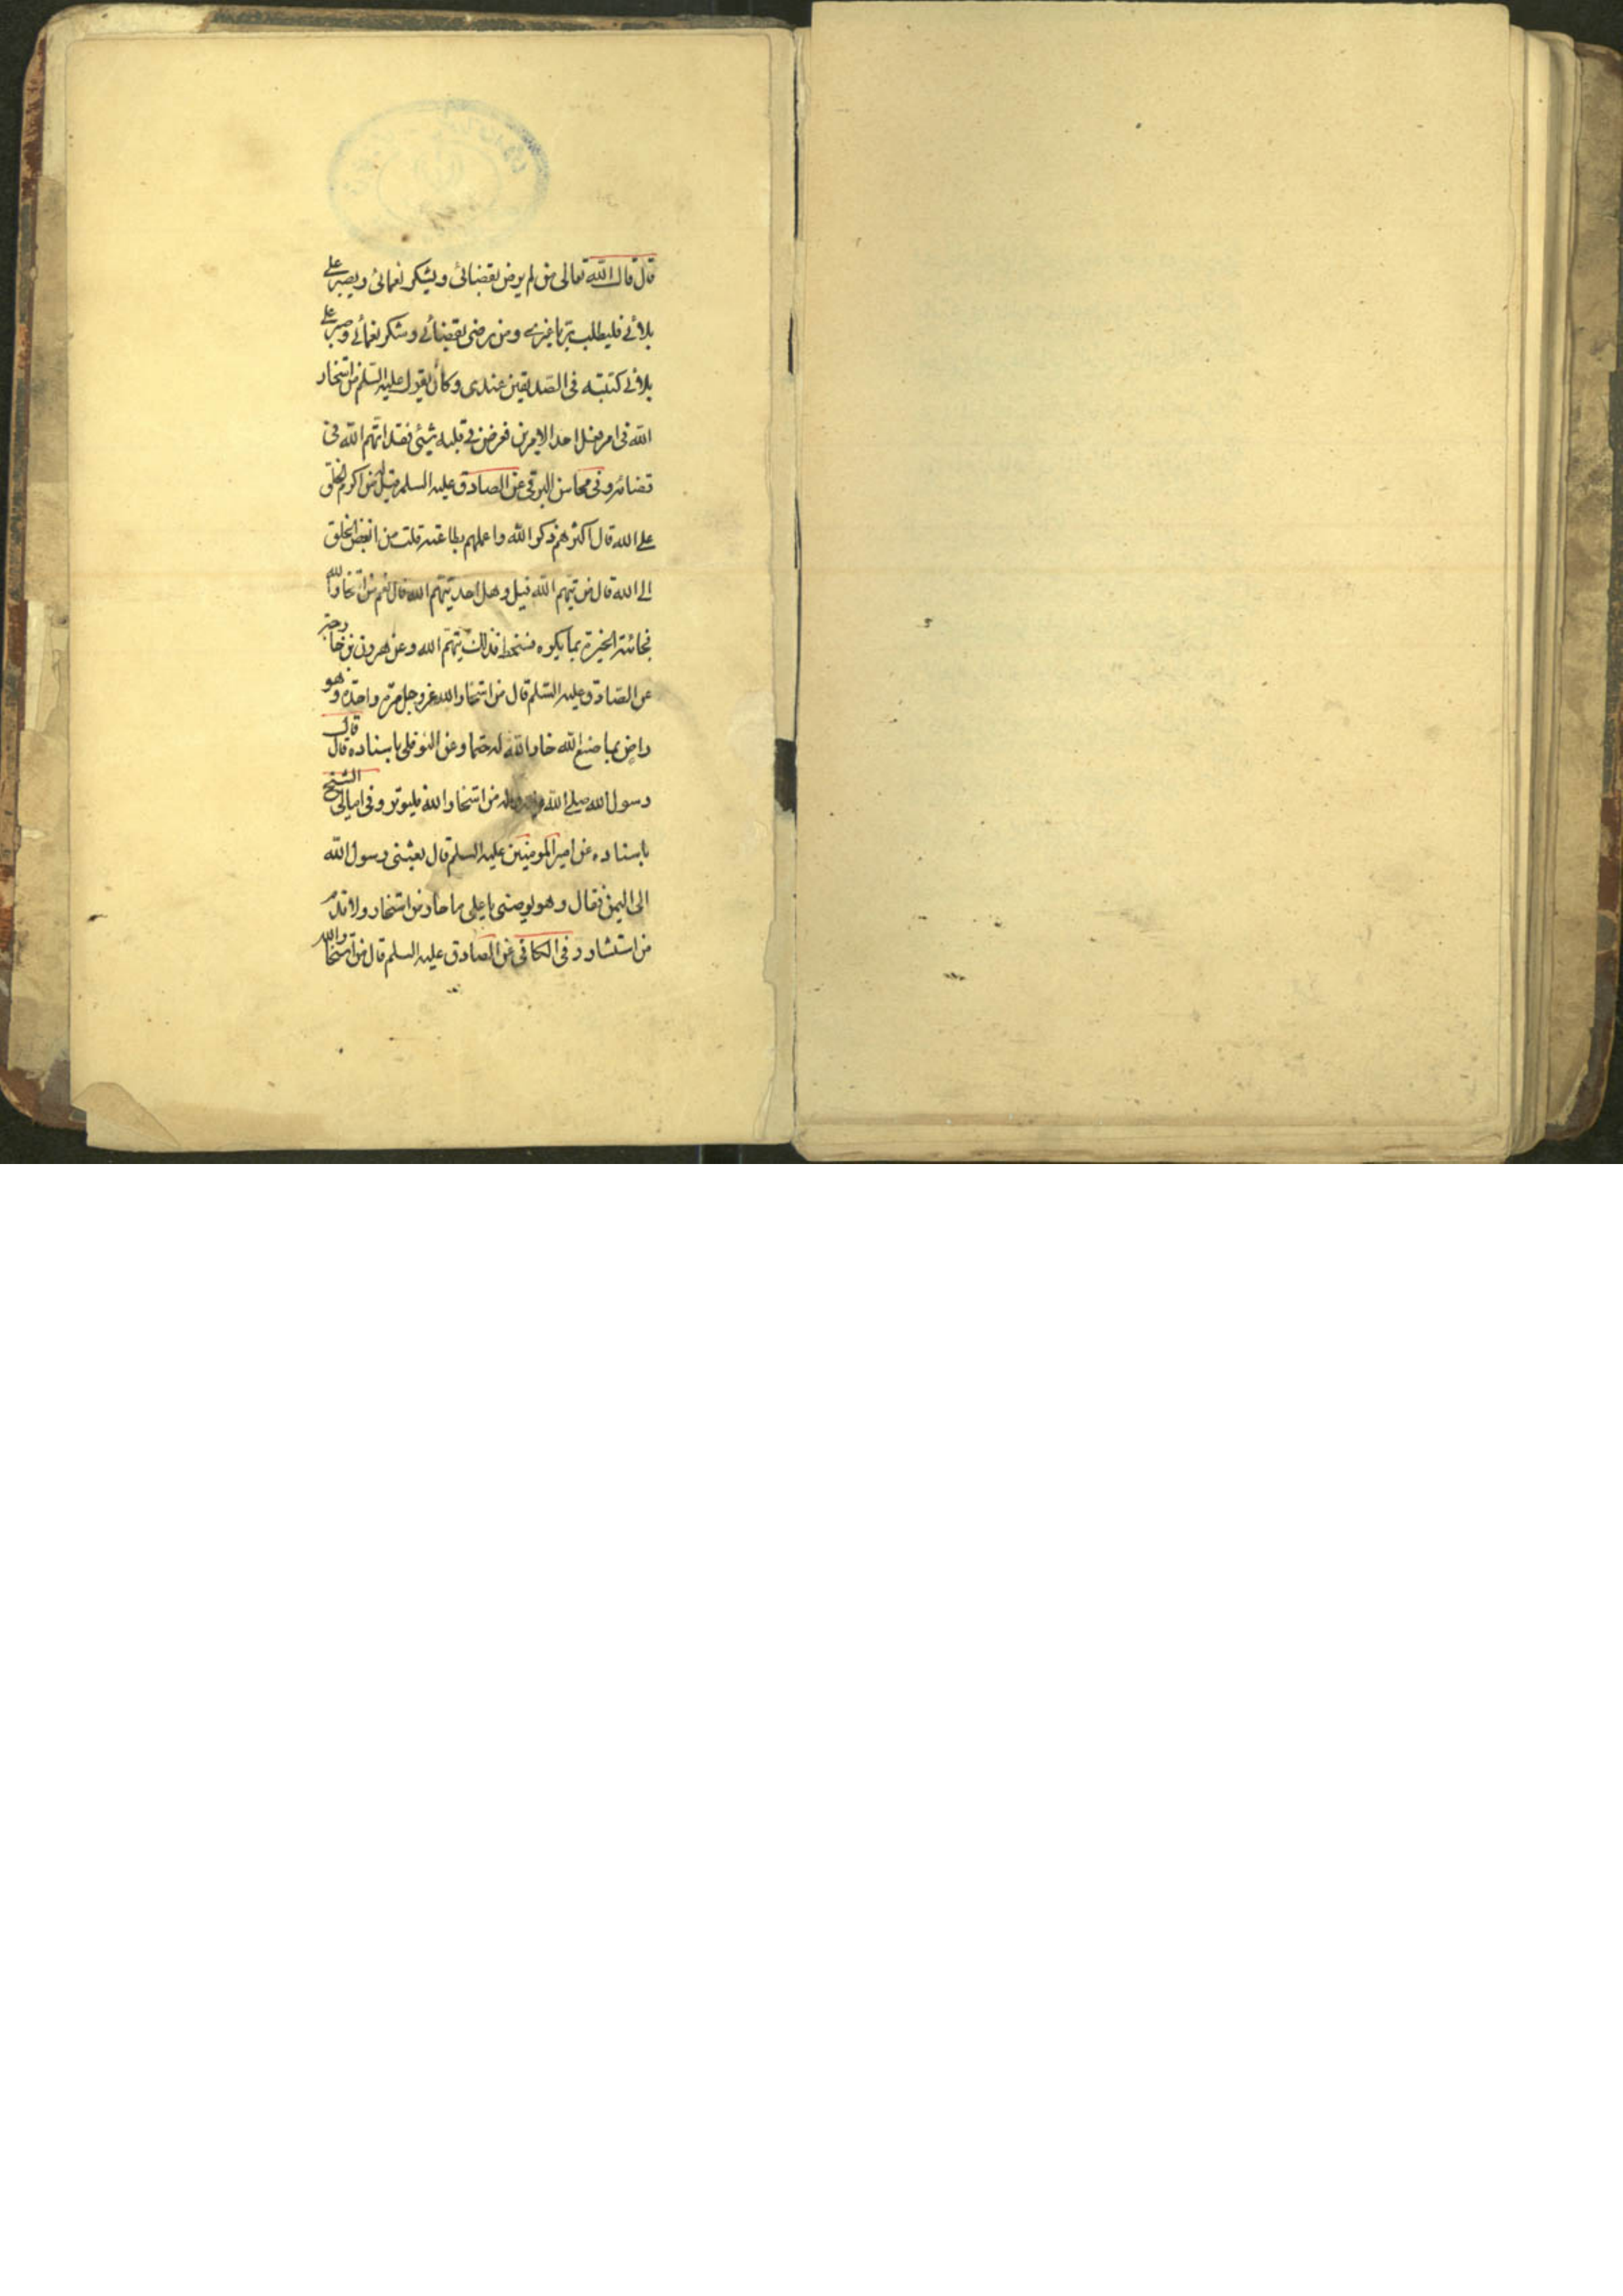 قال قال الله تعالى من لم يرض بقضائى ويشكر نعمائى ويصبر على
بلائے فليطلب ربا غيرے ومن رضى بقضائے وشكر نعمائے وصبر على
بلائے كتبته فى الصديقين عندى وكان يقول عليه السلم من استخار
الله فى امر فعل احد الامرين فعرض فے قلبه شيئى فقد اتهم الله فى
قضائه وفى محاسن البرقى عن الصادق عليه السلم قيل له من اكرم الخلق
على الله قال اكثرهم ذكر الله واعملهم بطاعته قلت من ابغض الخلق
الى الله قال من يتهم الله قيل وهل احد يتهم الله قال نعم من استخار الله
فجائته الخيرة بما يكره فسخط فذلك يتهم الله وعن هرون بن خارجة
عن الصادق عليه السلم قال من استخار الله عز وجل مرة واحدة وهو
راض بما صنع الله خار الله له حتما وعن النوفلى باسناده قال قال
رسول الله صلے الله عليه واله من استخار الله فليوتر وفى امالى الشيخ
باسناده عن امير المومنين عليه السلم قال بعثنى رسول الله
الى اليمن فقال وهو يوصنى يا على ما حار من استخار ولا ندم
من استشار وفى الكافى عن الصادق عليه السلم قال من استخار الله